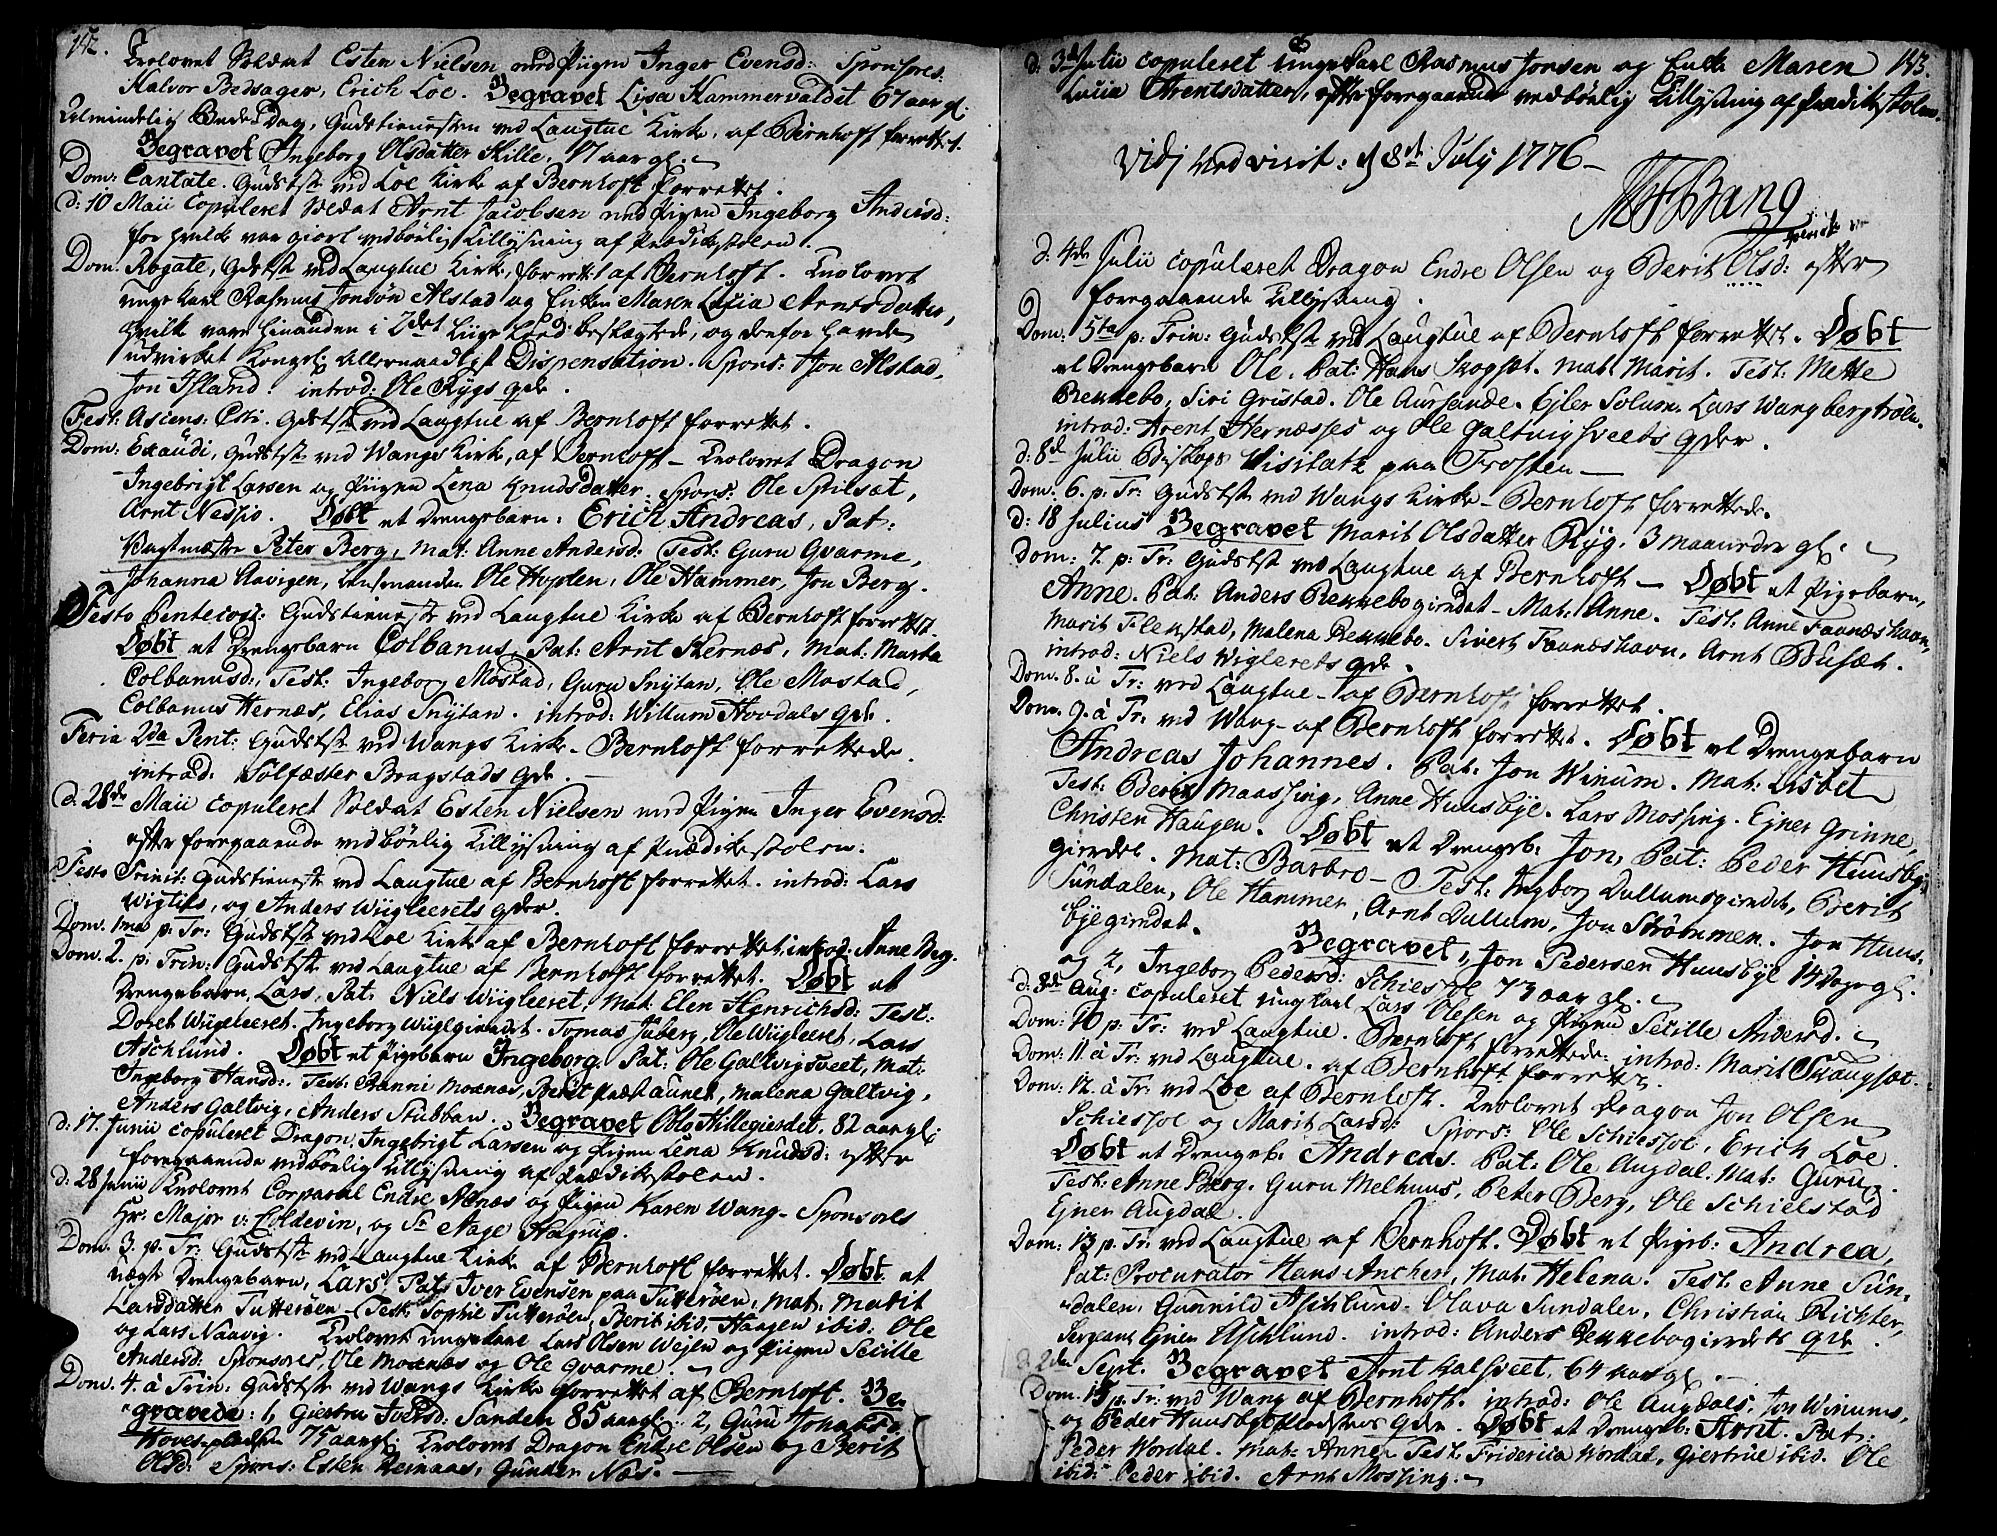 142.
Trolovet Soldat Esten Nielsen med Pigen Inger Evensd: Sponsores:
Halvor Bedsager, Erich Loe. Begravet Lysa Hammervaldet 67 aar gl.
Almindelig Bededag, Gudstienesten ved Laugtue Kirke, af Bernhoft forrettet.
Begravet Ingeborg Olsdatter Hille, 17 aar gl.
Dom: Cantate. Gudstst ved Loe Kirke af Bernhoft forrettet.
d: 10 Maii Copuleret Soldat Arnt Jacobsen med Pigen Ingeborg Andersd:
for hvilke var giort vedbørlig Tillysning af Prædikestolen.
Dom. Rogate, Gdstst ved Laugtue Kirke, forrettet af Bernhoft. Trolovet
unge Karl Rasmus Jonsøn Alstad og Enken Maren Lucia Arntsdatter,
hvilke vare hinanden i 2det Liige Leed beslægtede, og derfor havde
udvirket Kongel: allernaadigst Dispensation. Spons: Jon Alstad,
Jon Island. introd: Ole Rygs qde.
Fest: Ascens: Csti. Gdstst ved Laugtue af Bernhoft forrettet.
Dom: Exaudi, Gudstst ved Wangs Kirke, af Bernhoft - Trolovet Dragon
Ingebrigt Larsen og Pigen Lena Knudsdatter. Spons: Ole Spilset,
Arnt Nessio. Døbt et Drengebarn: Erich Andreas, Pat:
Vagtmæstr Peter Berg, Mat: Anne Andersd: Test: Guru Qvarme,
Johanna Aavigen, Lensmanden Ole Hoplen, Ole Hammer, Jon Berg.
Festo Pentecost: Gudstienest ved Laugtue Kirke af Bernhoft forrettet.
Døbt et Drengebarn Colbanus, Pat: Arnt Hernæs, Mat: Marta
Colbanusd:, Test: Ingeborg Mostad, Guru Snytan, Ole Mostad,
Colbanus Hernæs, Elias Snytan. introd: Willum Hovdals Qde.
Feria 2da Pent: Gudstst ved Wangs Kirke - Bernhoft forrettede
introd: Solfæster Bragstads Qde.
d: 28de Maii copuleret Soldat Esten Nielsen med Pigen Inger Evensd:
efter foregaaende vedbørlig Tillysning af Prædikestolen.
Festo Trinit: Gudstieneste ved Laugtue af Bernhoft forrettet. introd: Lars
Wigtils, og Anders Wigleerets Qder.
Dom. 1ma p. Tr: Gudstst ved Loe Kirke af Bernhoft forrettet. introd: Anne Beg.
Dom. 2. p: Trin: Gudstst ved Laugtue af Bernhoft forrettet. Døbt et
Drengebarn, Lars, Pat: Niels Wigleeret, Mat: Elen Henrichsd: Test:
Doret Wigeleeret. Ingeborg Wiglgierdet. Tomas Juberg, Ole Wigleeret, Lars
Aschlund. Døbt et Pigebarn Ingeborg. Pat: Ole Galtvigsveet, Mat:
Ingeborg Hansd:. Test: Ranni Moxnæs, Beret Præstaunet, Malena Galtvig,
Anders Galtvig, Anders Stubban. Begravet Ole Hillegierdet. 82 aar gl:
d: 17. Junii copuleret Dragon, Ingebrigt Larsen og Pigen Lena Knudsd: efter
foregaaende vedbørlig Tillysning af Prædikestolen.
d: 28 Junii Trolovet Corporal Endre Næs og Pigen Karen Wang - Sponsores
Hr. Major v: Coldevin, og Sr Aage Hagrup.
Dom. 3. p. Tr: Gudstst ved Laugtue Kirke af Bernhoft forrettet. Døbt et
uægte Drengebarn, Lars, Pat: Iver Evensen paa Tutterøen, Mat: Marit
Larsdatter Tutterøen - Test: Sophie Tutterøen, Berit ibid, Haagen ibid. Ole
og Lars Naavig. Trolovet Ungekarl Lars Olsen Weien og Pigen Seville
Andersd: Sponsores, Ole Moxnæs og Ole Qvarme.
Dom. 4. à Trin: Gudstst ved Wangs Kirke forrettet af Bernhoft. Be-
gravede: 1, Giertru Iversd: Sanden 85 aar gl. 2, Guru Johansd:
Hoves-pladsen 75 aar gl: Trolovet Dragon Endre Olsen og Berit
Olsd: Spons: Esten Reinaas, Gunder Næs.
143.
d. 3de Julii copuleret ungekarl Rasmus Jonsen og Enke Maren
Lucia Arentsdatter, efter foregaaende vedbørlig Tillysning af Prædikestolen.
Vidj ved visit: d 8de July 1776
MFBang
d: 4de Julii copuleret Dragon Endre Olsen og Berit Olsd: efter
foregaaende Tillysning.
Dom. 5ta p. Trin: Gudstst ved Laugtue af Bernhoft forrettet. Døbt
et Drengebarn Ole. Pat: Hans Skogset. Mat: Marit. Test: Mette
Rekkebo, Siri Gristad. Ole Aursande. Ejler Solum. Lars Wangbergtrøen.
introd: Arent Hernæsses og Ole Galtvigsveets Qder.
d: 8de Julii Biskops Visitatz paa Frosten
Dom. 6. p. Tr: Gudstst ved Wangs Kirke - Bernhoft forrettede.
d: 18 Julius Begravet Marit Olsdatter Ryg. 3 maaneder gl.
Dom: 7. p: Tr: Gudstst ved Laugtue af Bernhoft - Døbt et Pigebarn,
Anne. Pat: Anders Rekkebogierdet - Mat: Anne. Test: Anne Faanæshavn,
Marit Flekstad, Malena Rekkebo. Sivert Faanæshavn, Arnt Buset.
introd: Niels Wiglerets Qde.
Dom. 8. à Tr: ved Laugtue - af Bernhoft forrettet.
Dom. 9. à Tr: ved Wang - af Bernhoft forrettet. Døbt et Drengebarn
Andreas Johannes. Pat: Jon Winum. Mat: Lisbet
Test: Berit Maassing, Anne Huusbye. Lars Mossing. Ejner Grinne,
Christen Haugen. Døbt et Drengeb: Jon, Pat: Peder Huusbye
gierdet. Mat: Barbro - Test: Ingborg Dullumsgierdet, Berit
Sundalen, Ole Hammer, Arnt Dullum, Jon Strømmen. Jon Huus,
byegierdet. Begravet, Jon Pedersen Huusbye 14 Dage gl.
og 2, Ingeborg Pedersd: Schiesøe 73 aar gl.
d: 8de Aug: copuleret ungkarl Lars Olesen og Pigen Seville Andersd.
Dom: 10 p. Tr: ved Laugtue. Bernhoft forrettede. introd: Marit Skaugset.
Dom: 11. à Tr: ved Laugtue. af Bernhoft forrettet.
Dom: 12. à Tr: ved Loe af Bernhoft. Trolovet Dragon Jon Olsen
Schiesioe og Marit Larsd: Spons: Ole Schiessioe, Erich Loe.
Døbt et Drengeb: Andreas. Pat: Ole Augdal. Mat: Guru.
Test: Anne Berg. Guru Melhuus, Peter Berg, Ole Schielstad
Ejner Augdal.
Dom: 13 p. Tr: ved Laugtue af Bernhoft. Døbt et Pigeb: Andrea,
Pat: Procurator Hans Ancher, Mat: Helena. Test: Anne Sun-
dalen, Gunnild Aschlund. Olava Sundalen, Christian Richter,
Sergeant Ejner Aschlund. introd: Anders Rekkebogierdets Qde.
d: 2den Sept. Begravet Arnt Kalsveet, 64 aar gl.
Dom. 15 p. Tr: ved Wang af Bernhoft. introd: Ole Augdals, Jon Winums,
og Peder Huusbyepladsens Qder. Døbt et Drengeb: Arnt. Pat:
Peder Wordal. Mat: Anne. Test: Fridericia Wordal, Giertrue ibid. Ole
ibid. Peder ibid. Arnt Mossing.